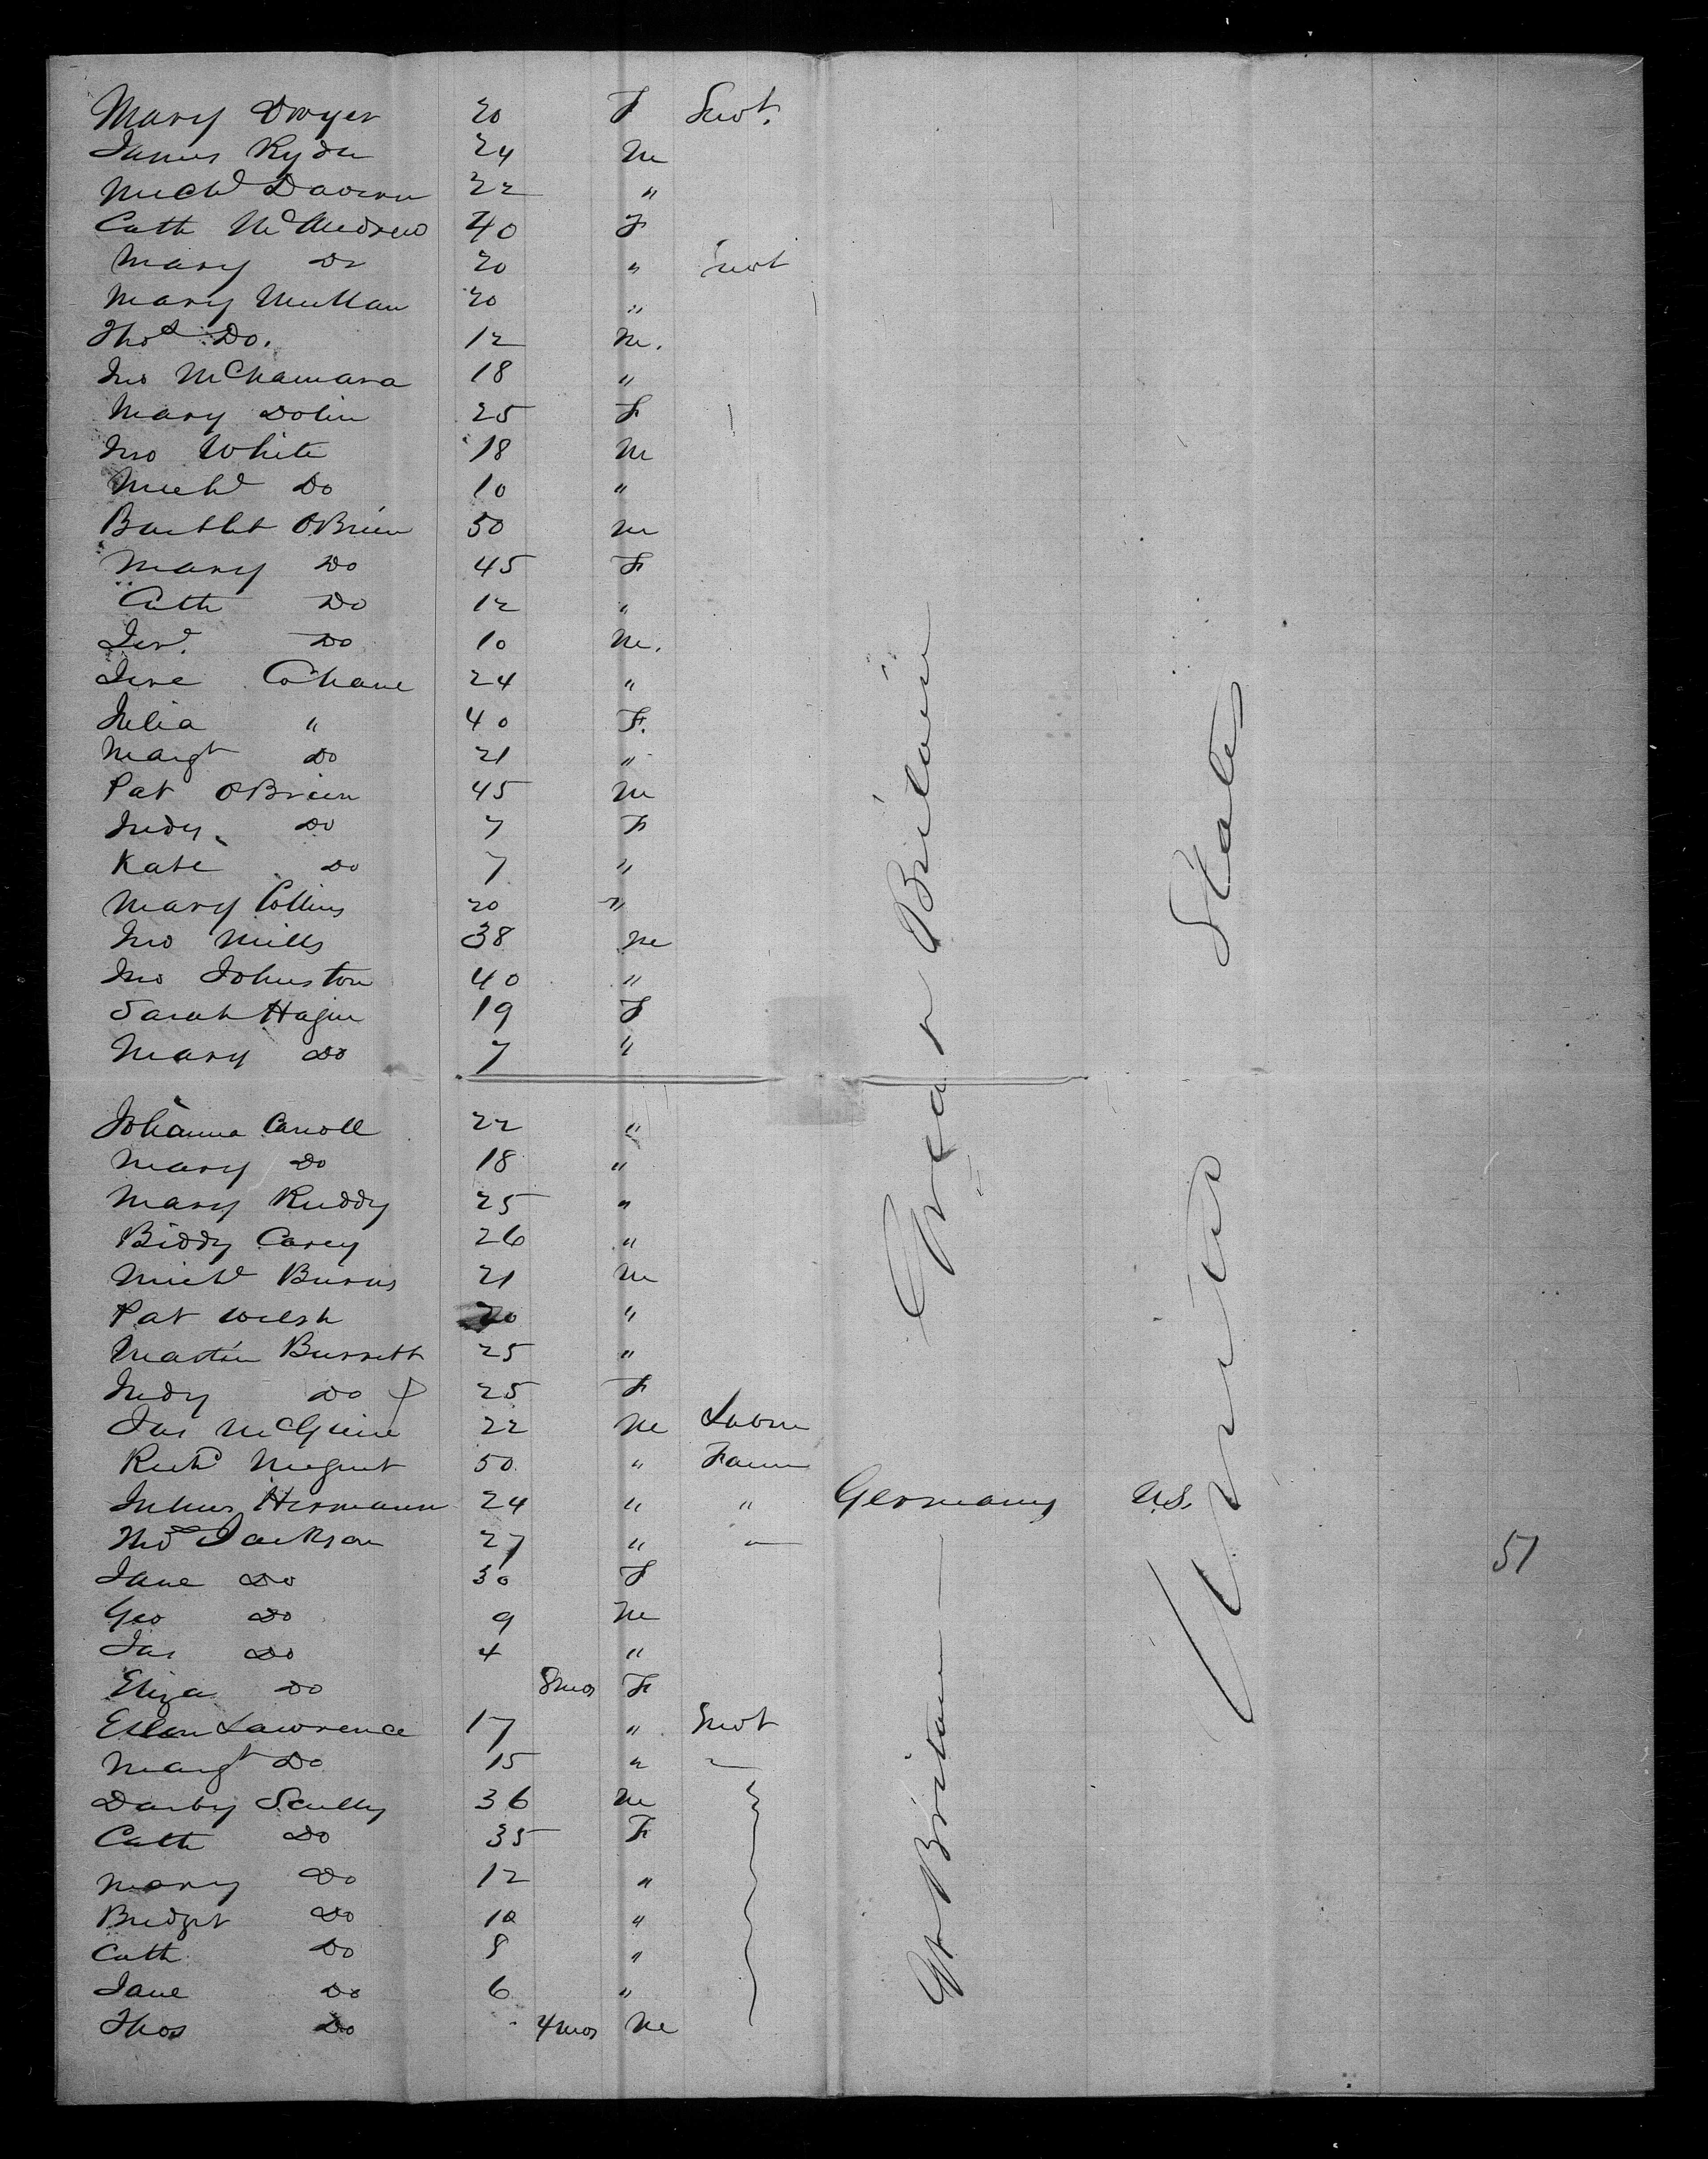 Mary Dwyer 20 F Servt.
James Ryder 24 M
Michl Davern 22 "
Cath McAndrew 40 F
Mary Do 20 " Servt
Mary Mullan 20 "
Thos Do. 12 M.
Jno McNamara 18 "
Mary Dolin 25 F
Jno White 18 M
Michl Do 10 "
Bartlet OBrien 50 M
Mary Do 45 F
Cath Do 12 "
Do 10 M.
Jere Cohane 24 "
Julia " 40 F.
Margt Do 21 "
Pat OBrien 45 M
Judy Do 7 F
Kate Do 7 "
Mary Collins 20 "
Jno Mills 38 M
Jno Johnston 40 "
Sarah Hagin 19 F
Mary Do 7 "
Johanna Carroll 22 "
Mary Do 18 "
Mary Ruddy 25 "
Biddy Carey 26 "
Michl Burns 21 M
Pat Welsh 20 "
Martin Burrett 25 "
Judy Do 25 F
Jas McGuire 22 M Labor
Richd Nugent 50 " Farmr
Julius Hermann 24 " " Germany U.S.
Thos Jackson 27 " "
51
Jane Do 30 F
Geo Do 9 M
Jas Do 4 "
Eliza Do 8mos F
Ellen Lawrence 17 " Servt
Margt Do 15 " "
Darby Scully 36 M
Cath Do 35 F
Mary Do 12 "
Bridget Do 10 "
Cath Do 8 "
Jane Do 6 "
Thos Do 4mos M
Great Britain
United States
Gt Britain